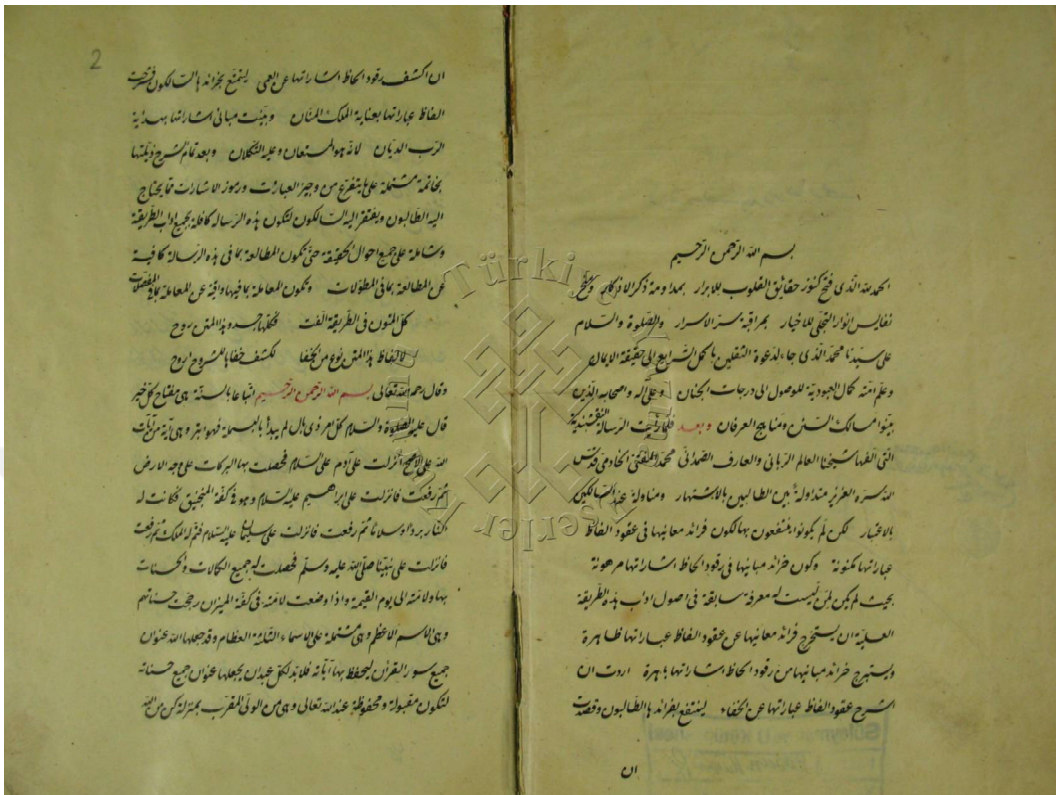 بسم الله الرحمن الرحيم
الحمد لله الذى فتح كنوز حقايق القلوب للابرار بمداومة ذكر الاذكار
نفايس انوار التجلى للاخيار بمراقبة سر الاسرار والصلوة والسلام
على سيدنا محمد الذى جاء لدعوة الثقلين باكمل الشرايع الى حقيقة الايمان
وعلم منه كمال العبودية للوصول الى درجات الجنان وعلى آله واصحابه الذين
بينوا مسالك السنن ومناهج العرفان وبعد فلما رأيت الرسالة النقشبندية
التى الفها شيخنا العالم الربانى والعارف الصمدانى محمد المفتى الخادمى قدس
الله سره العزيز متداولة بين الطالبين بالاشتهار ومناولة عند السالكين
بالاعتبار لكن لم يكونوا ينتفعون بها لكون فرائد معانيها فى عقود الفاظ
عباراتها مكنونة وكون خرائد مبانيها فى رقود الحاظ اشاراتها مرهونة
بحيث لم يكن لمن ليست له معرفة سابقة فى اصول اداب هذه الطريقة
العلية ان يستخرج فرائد معانيها عن عقود الفاظ عباراتها ظاهرة
ويستهرج خرائد مبانيها من رقود الحاظ اشاراتها باهرة اردت ان
اشرح عقود الفاظ عباراتها عن الخفاء لينتفع بفرائدها الطالبون وقصدت
ان
2
ان اكشف رقود الحاظ اشاراتها عن العمى ليتمتع بخرائدها السالكون فشرحت
الفاظ عباراتها بعناية الملك المنان وبينت مبانى اشاراتها بهداية
الرب الديان لانه هو المستعان وعليه التكلان وبعد تمام الشرح ذيلتها
بخاتمة مشتملة على ما يتفرع من وجيز العبارات ورموز الاشارات مما يحتاج
اليه الطالبون ويفتقر اليه السالكون لتكون هذه الرسالة كافلة بجميع اداب الطريقة
وشاملة على جميع احوال الحقيقة حتى تكون المطالعة بما فى هذه الرسالة كافية
عن المطالعة بما فى المطولات وتكون المعاملة بما فيها وافية عن المعاملة بما فى المفصلات
كل المتون فى الطريقة الفت فكلها جسد وهذا المتن روح
لالفاظ هذا المتن نوع من الخفا لكشف خفاها للشروح اروح
وقال رحمه الله تعالى بسم الله الرحمن الرحيم اتباعا بالسنة هى مفتاح كل خير
قال عليه الصلوة والسلام كل امر ذى بال لم يبدأ بالبسملة فهو ابتر وهى آية من آيات
الله على الاصح انزلت على آدم عليه السلام فحصلت بها البركات على وجه الارض
ثم رفعت فانزلت على ابرهيم عليه السلام وهو فى كفة المنجنيق فكانت له
النار بردا وسلاما ثم رفعت فانزلت على سليمان عليه السلام فتم له الملك ثم رفعت
فانزلت على نبينا صلى الله عليه وسلم فحصلت له جميع الكمالات والحسنات
بها ولامته الى يوم القيمة واذا وضعت لامته فى كفة الميزان رجحت حسناتهم
وهى الاسم الاعظم وهى مشتملة على الاسماء الثلثة العظام وقد جعلها الله عنوان
جميع سور القرآن ليحفظ بها آياته فلا بد لكل عبد ان يجعلها عنوان جميع حسناته
لتكون مقبولة ومحفوظة عند الله تعالى وهى من الولى المقرب بمنزلة كن من الله
Türkiye Yazma Eserler Kurumu